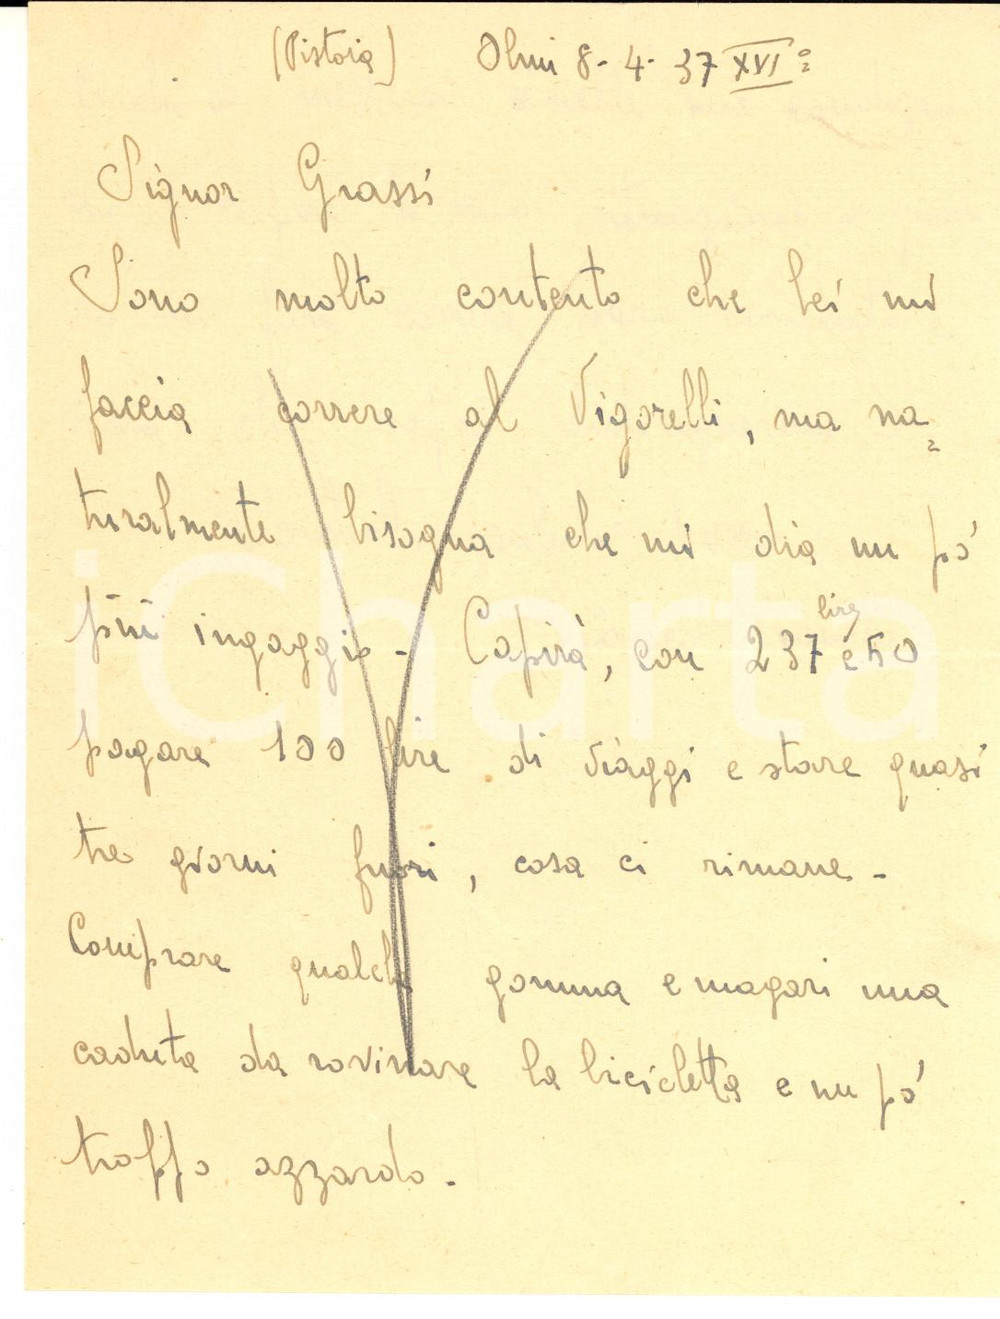 (Pistoia) Olmi 8-4-37 XVIº
Signor Grassi
Sono molto contento che Lei mi
faccia correre al Vigorelli, ma na=
turalmente bisogna che mi dia un pó
piú ingaggio - Capirà, con 237 lire e 50
pagare 100 lire di viaggi e stare quasi
tre giorni fuori, cosa ci rimane -
Comprare qualche gomma e magari una
caduta da rovinare la bicicletta e un pó
troppo azzardo -
iCharta